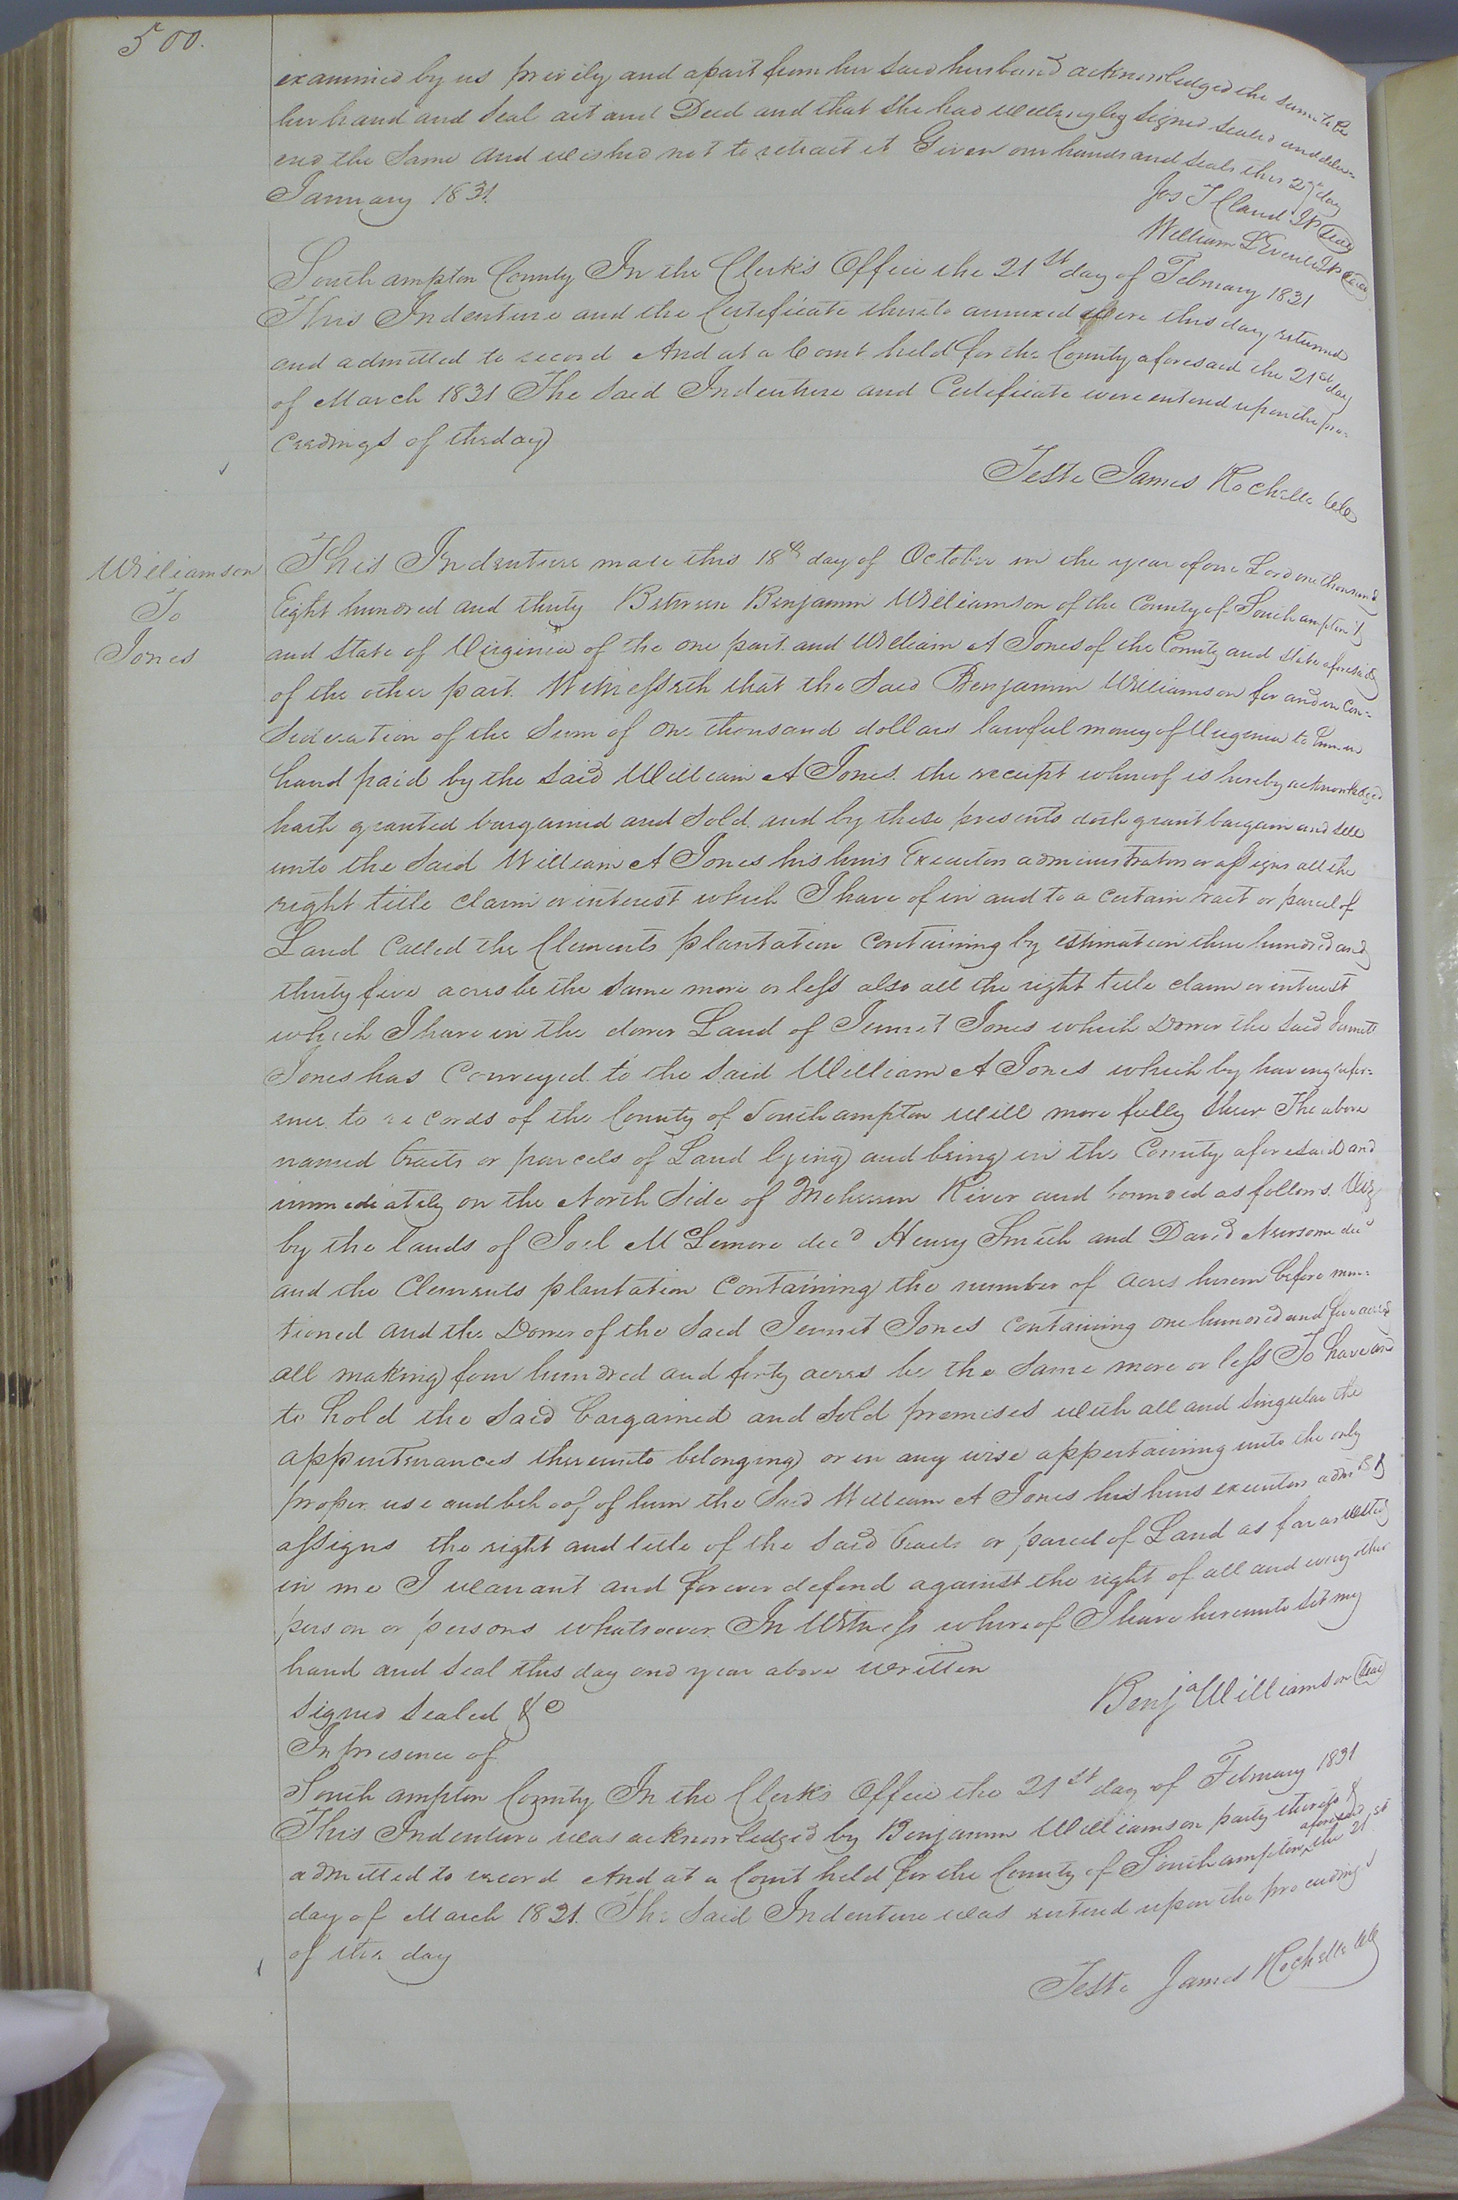 500.
examined by us privily and apart from her said husband acknowledged the same to be
her hand and Seal act and Deed and that she had willingly signed sealed and deliv-
ered the Same and wished not to retract it Given our hands and seals this 29th day
January 1831.
Jos T Claud JP Seal
William L Everitt JP Seal
Southampton County In the Clerk's Office the 21st day of February 1831
This Indenture and the Certificate thereto annexed were this day returned
and admitted to record And at a Court held for the County aforesaid the 21st day
of March 1831 The Said Indenture and Certificate were entered upon the pro-
ceedings of the day
Teste James Rochelle Clk
Williamson
To
Jones
This Indenture made this 18th day of October in the year of our Lord one thousand
Eight hundred and thirty Between Benjamin Williamson of the County of Southampton &
and State of Virginia of the one part and William A Jones of the County and State aforesaid
of the other part Witnesseth that the Said Benjamin Williamson for and in Con-
sideration of the Sum of one thousand dollars lawful money of Virginia to him in
hand paid by the Said William A Jones the receipt whereof is hereby acknowledged
hath granted bargained and Sold and by these presents doth grant bargain and Sell
unto the Said William A Jones his heirs Executors administrators or assigns all the
right title claim or interest which I have of in and to a certain tract or parcel of
Land Called the Clements plantation Containing by estimation three hundred and
thirty five acres be the Same more or less also all the right title claim or interest
which I have in the dower Land of Jennet Jones which Dower the Said Jennett
Jones has Conveyed to the Said William A Jones which by having refer-
ence to records of the County of Southampton will more fully Shew The above
named tracts or parcels of Land lying and being in the County aforesaid and
immediately on the North Side of Meherrin River and bounded as follows Viz
by the lands of Joel McLemore decd Henry Smith and David Newsome decd
and the Clements plantation Containing the number of acres herein before men-
tioned and the Dower of the Said Jennet Jones Containing one hundred and five acres
all making four hundred and forty acres be the Same more or less To have and
to hold the Said bargained and Sold premises with all and Singular the
appurtenances thereunto belonging or in any wise appertaining unto the only
proper use and behoof of him the Said William A Jones his heirs executors admrs &
assigns the right and title of the Said tracts or parcel of Land as far as vested
in me I warrant and forever defend against the right of all and every other
person or persons whatsoever In Witness whereof I have hereunto Set my
hand and Seal this day and year above written
Signed Sealed &c
Benja Williamson Seal
In presence of
Southampton County In the Clerk's Office the 21st day of February 1831
This Indenture was acknowledged by Benjamin Williamson party thereto &
admitted to record And at a Court held for the County of Southampton aforesaid the 21st
day of March 1831. The Said Indenture was entered upon the proceedings
of the day
Teste James Rochelle Clk